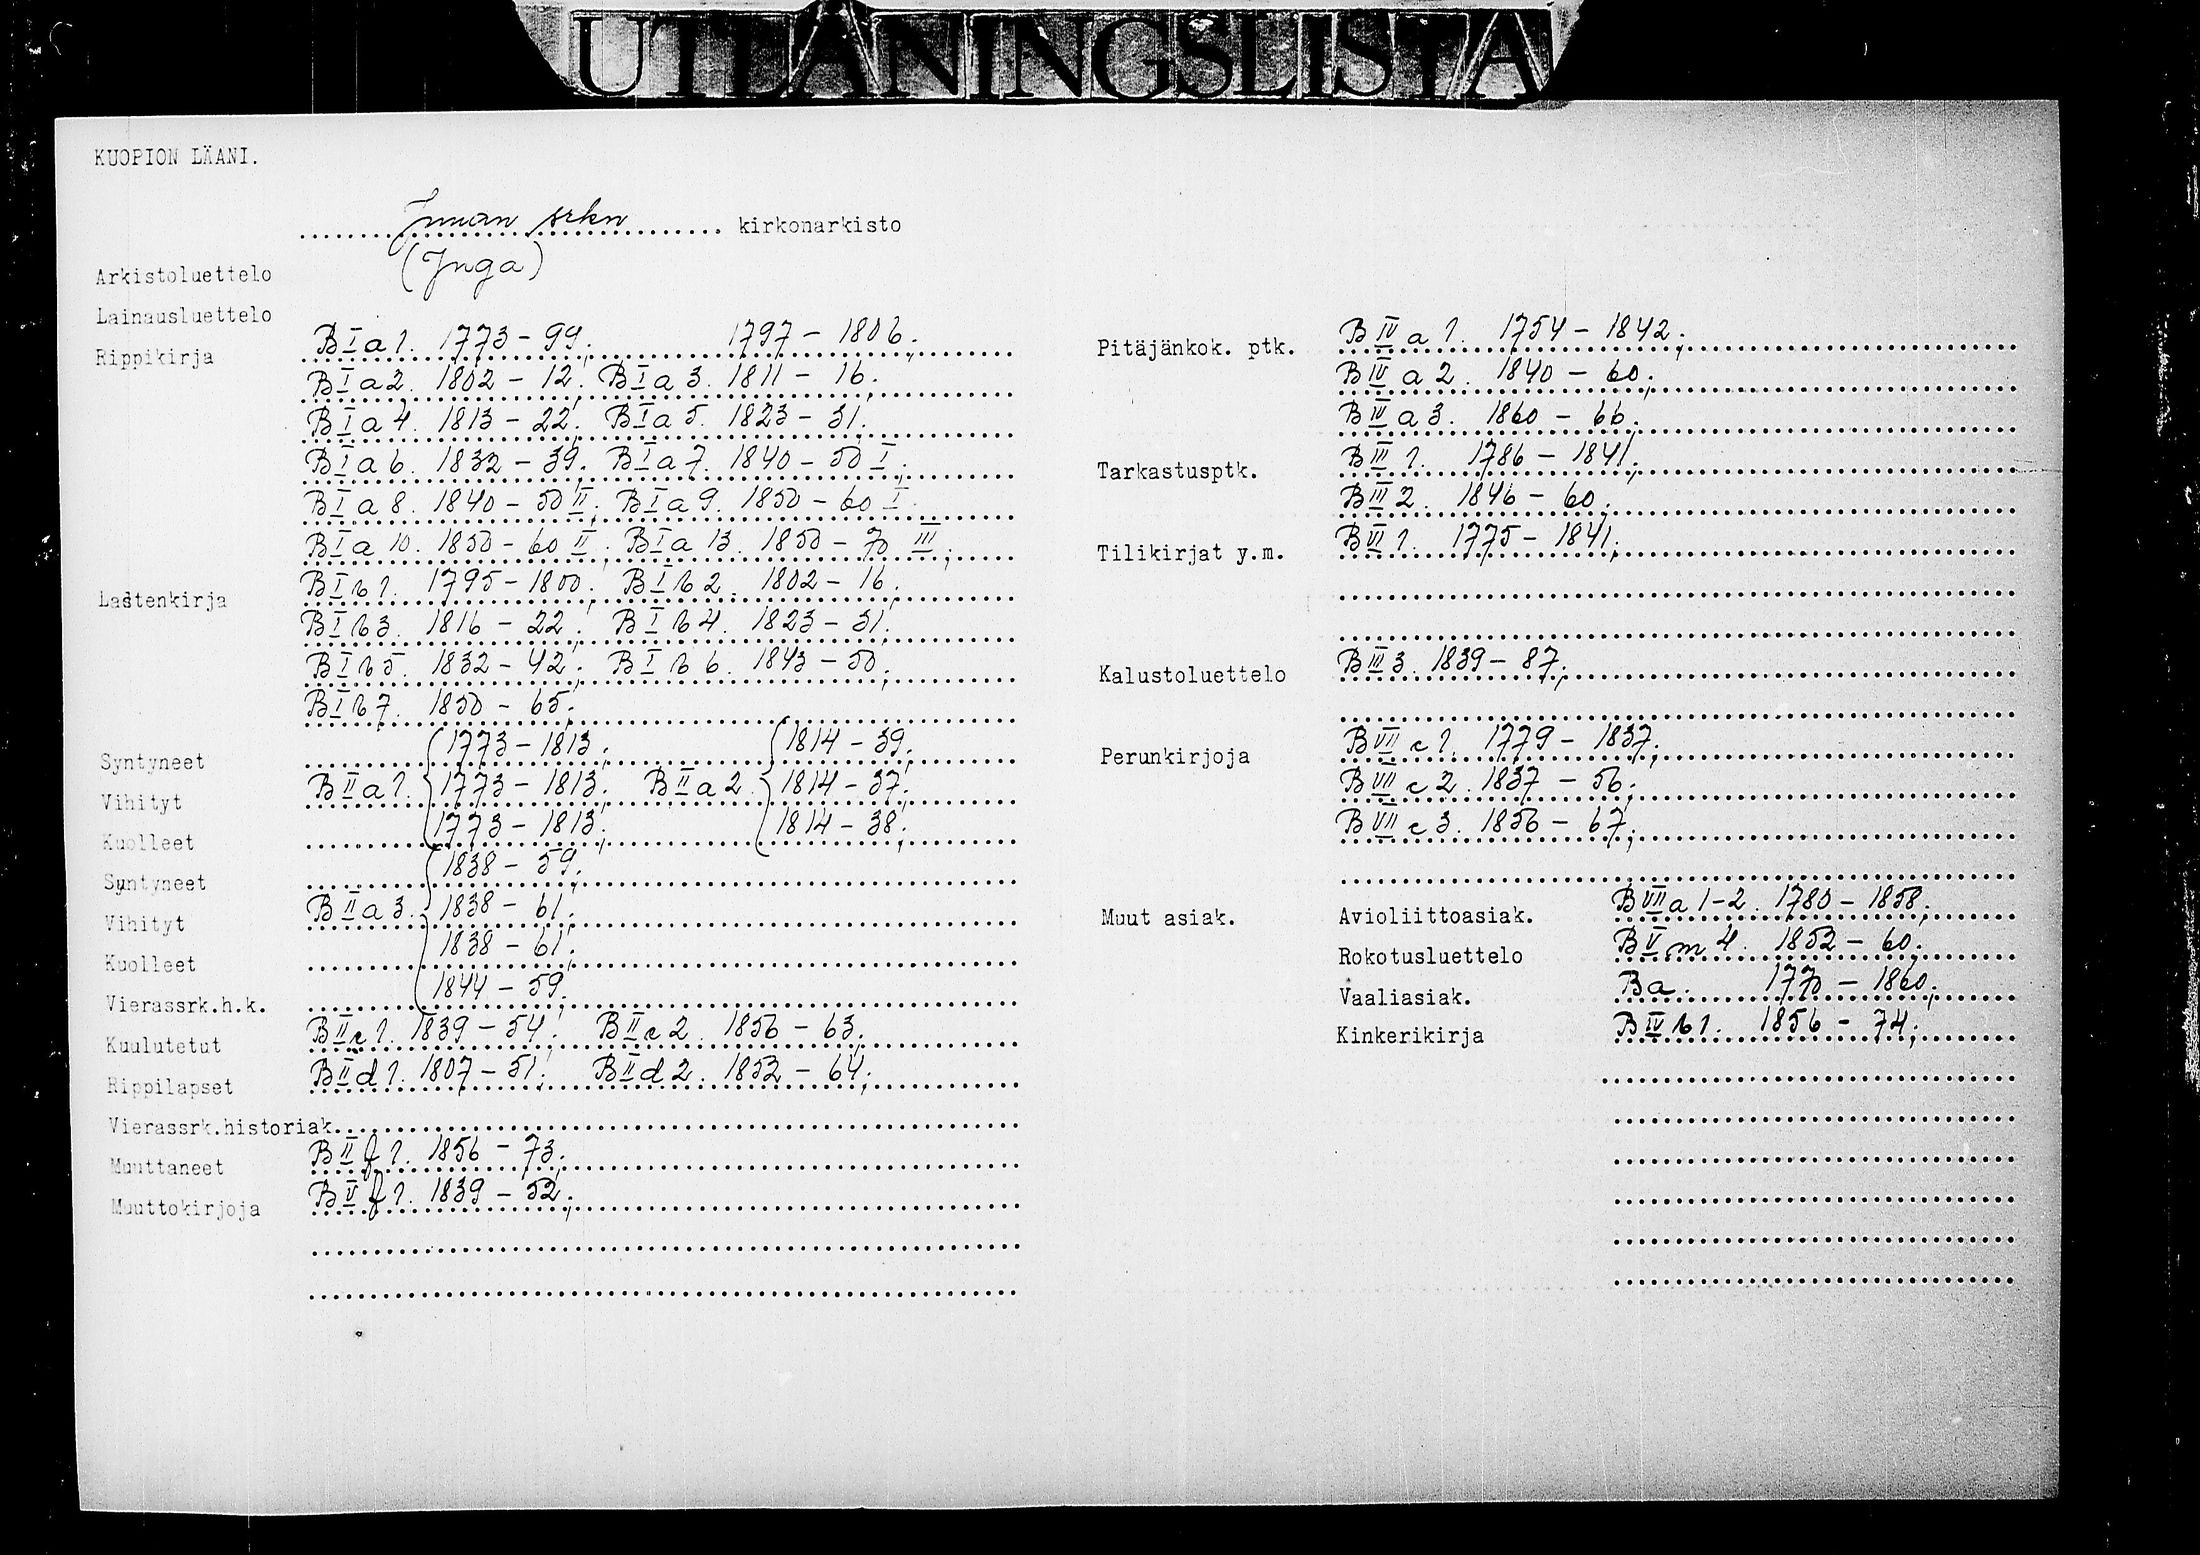 UTLÅNINGSLISTA
KUOPION LÄÄNI.
Innan srkn kirkonarkisto
(Inga)
Arkistoluettelo
Lainausluettelo
Rippikirja B I a 1. 1773-99; 1797-1806;
B I a 2. 1802-12; B I a 3. 1811-16.
B I a 4. 1813-22; B I a 5. 1823-31;
B I a 6. 1832-39; B I a 7. 1840-50 I;
B I a 8. 1840-50 II; B I a 9. 1850-60 I
B I a 10. 1850-60 II; B I a 13. 1850-70 III;
Lastenkirja B I b 1. 1795-1800; B I b 2. 1802-16;
B I b 3. 1816-22; B I b 4. 1823-31;
B I b 5. 1832-42; B I b 6. 1843-50;
B I b 7. 1850-65;
Syntyneet 1773-1813; 1814-39;
Vihityt B II a 1. 1773-1813; B II a 2. 1814-37;
Kuolleet 1773-1813; 1814-38;
Syntyneet 1838-59;
Vihityt B II a 3. 1838-61;
Kuolleet 1838-61;
Vierassrk.h.k. 1844-59;
Kuulutetut B II c 1. 1839-54; B II c 2. 1856-63;
Rippilapset B II d 1. 1807-51; B II d 2. 1852-64;
Vierassrk.historiak.
Muuttaneet B II f 1. 1856-73;
Muuttokirjoja B V f 1. 1839-52;
Pitäjänkok. ptk. B IV a 1. 1754-1842;
B IV a 2. 1840-60;
B IV a 3. 1860-66;
Tarkastusptk. B III 1. 1786-1841;
B III 2. 1846-60;
Tilikirjat y.m. B VI 1. 1775-1841;
Kalustoluettelo B III 3. 1839-87;
Perunkirjoja B VII c 1. 1779-1837;
B VII c 2. 1837-56;
B VII c 3. 1856-67;
Muut asiak. Avioliittoasiak. B VII a 1-2. 1780-1858;
Rokotusluettelo B V m 4. 1852-60;
Vaaliasiak. Ba. 1770-1860;
Kinkerikirja B IV b 1. 1856-74;